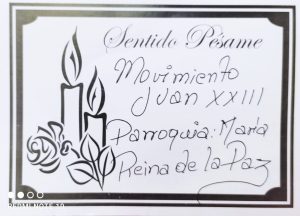 Sentido Pésame
Movimiento
Juan XXIII
Parroquia: María
Reina de la Paz